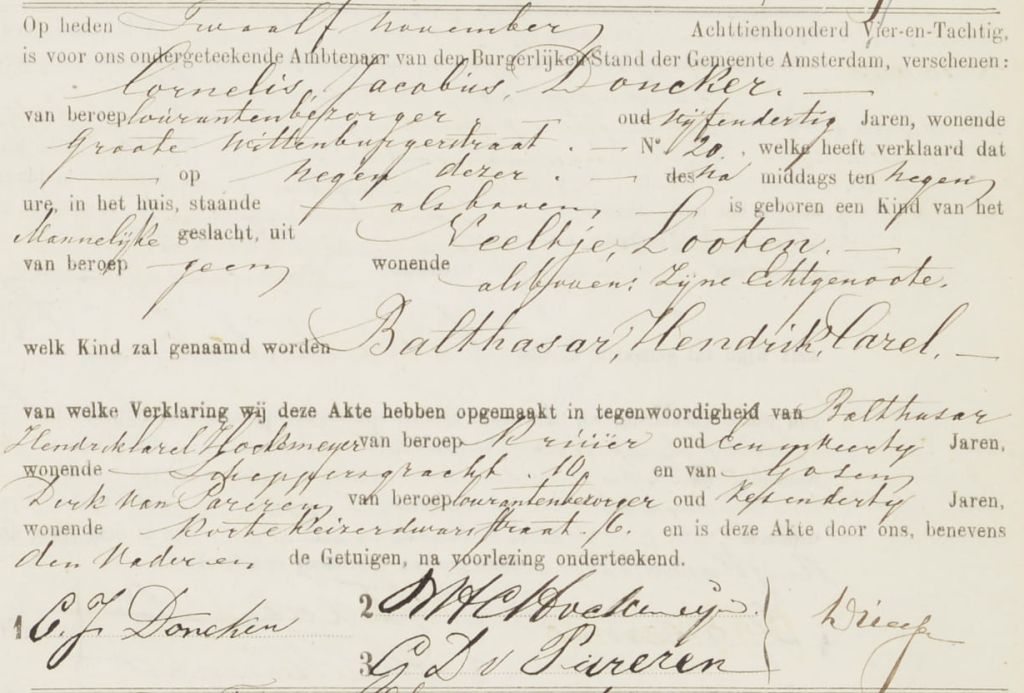 Op heden Twaalf November Achttienhonderd Vier-en-Tachtig,
is voor ons ondergeteekende Ambtenaar van den Burgerlijken Stand der Gemeente Amsterdam, verschenen:
Cornelis, Jacobus, Doncker. —
van beroep Courantenbezorger, — oud vijfendertig Jaren, wonende
Groote Wittenburgerstraat. — N° 20, welke heeft verklaard dat
— op Negen dezer. — des na middags ten negen
ure, in het huis, staande alsboven — is geboren een Kind van het
Mannelijke geslacht, uit Neeltje, Looten. —
van beroep geen wonende alsboven: Zijne Echtgenoote.
welk Kind zal genaamd worden Balthasar, Hendrik, Carel. —
van welke Verklaring wij deze Akte hebben opgemaakt in tegenwoordigheid van Balthasar
Hendrik Carel Hockemeyer van beroep Kruier oud Eenenveertig Jaren,
wonende Schippersgracht. 10, en van Gosen
Dirk van Pareren van beroep Courantenbezorger oud Zesendertig Jaren,
wonende Korte Keizerdwarsstraat. 6. en is deze Akte door ons, benevens
den Vader en de Getuigen, na voorlezing onderteekend.
1 C. J. Doncker 2 BHC Hockemeyer
3 G D v Pareren